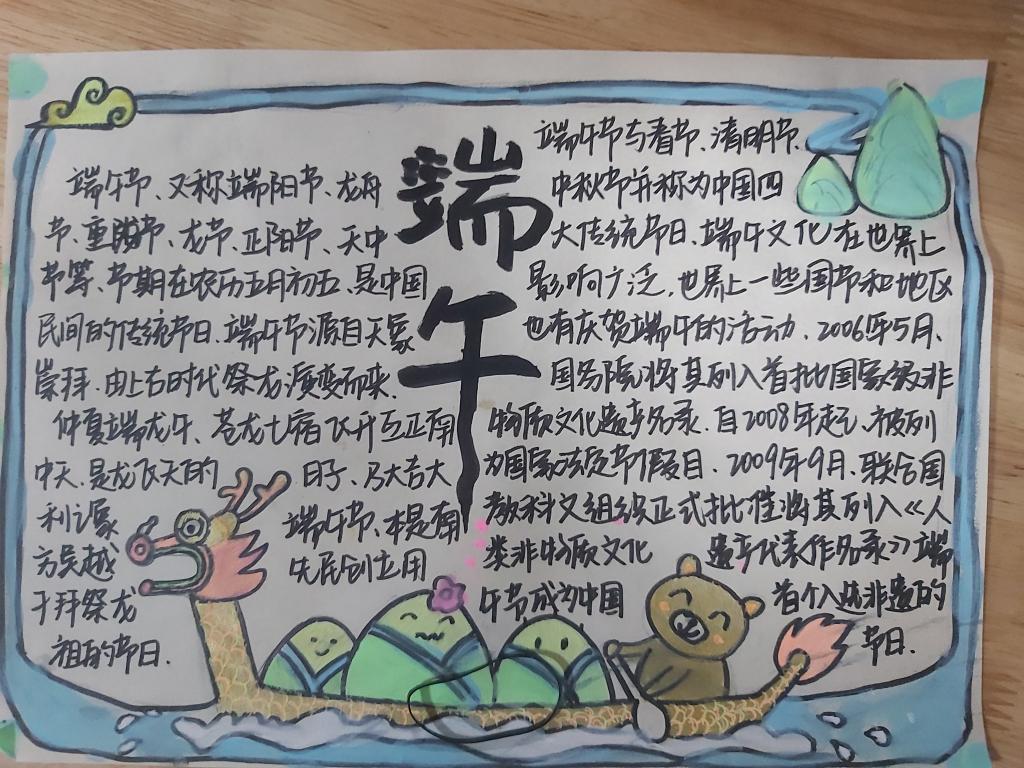 端午
端午节、又称端阳节、龙舟
节、重午节、龙节、正阳节、天中
节等、节期在农历五月初五、是中国
民间的传统节日、端午节源自天象
崇拜、由上古时代祭龙演变而来.
仲夏端龙午、苍龙七宿飞升至正南
中天、是龙飞天的 日子、乃大吉大
利之象 端午节、本是南
方吴越 先民创立用
于拜祭龙
祖的节日.
端午节与春节、清明节、
中秋节并称为中国四
大传统节日、端午文化在世界上
影响广泛,世界上一些国节和地区
也有庆贺端午的活动、2006年5月、
国务院将其列入首批国家级非
物质文化遗产名录、自2008年起、被列
为国家法定节假日、2009年9月、联合国
教科文组织正式批准将其列入《人
类非物质文化 遗产代表作名录》端
午节成为中国 首个入选非遗的
节日.